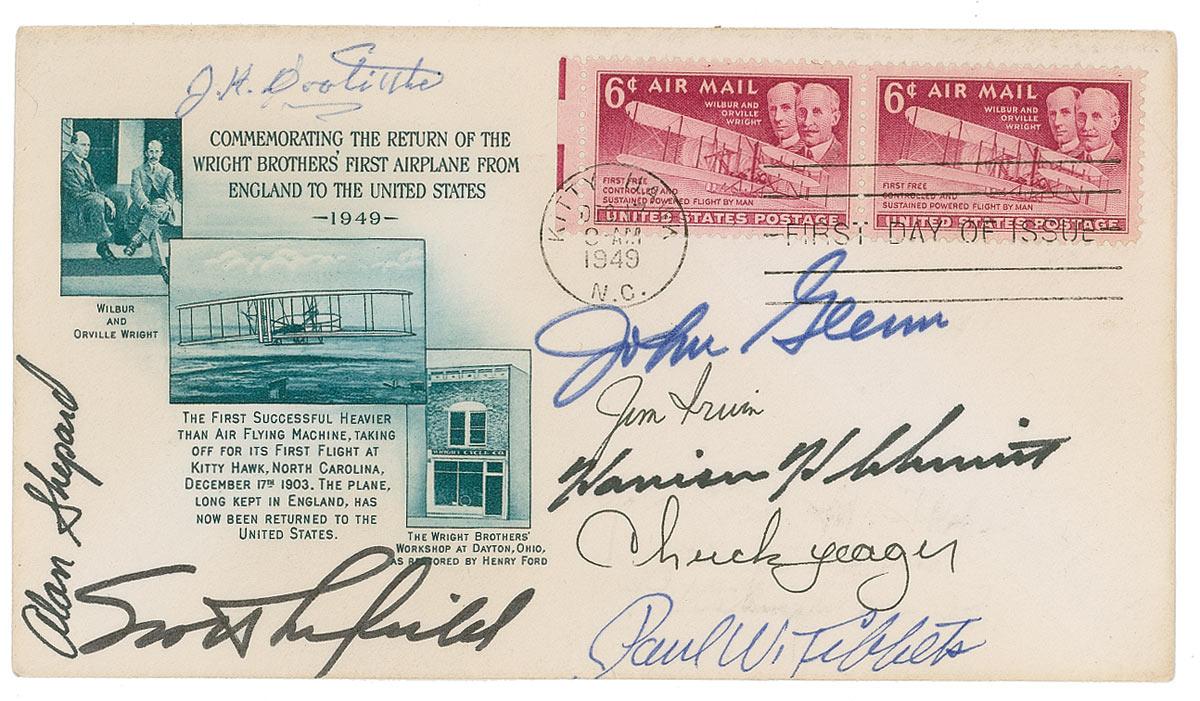 J. H. Doolittle
COMMEMORATING THE RETURN OF THE
WRIGHT BROTHERS' FIRST AIRPLANE FROM
ENGLAND TO THE UNITED STATES
—1949—
WILBUR
AND
ORVILLE WRIGHT
THE FIRST SUCCESSFUL HEAVIER
THAN AIR FLYING MACHINE, TAKING
OFF FOR ITS FIRST FLIGHT AT
KITTY HAWK, NORTH CAROLINA,
DECEMBER 17TH 1903. THE PLANE,
LONG KEPT IN ENGLAND, HAS
NOW BEEN RETURNED TO THE
UNITED STATES.
WRIGHT CYCLE CO.
THE WRIGHT BROTHERS'
WORKSHOP AT DAYTON, OHIO,
AS RESTORED BY HENRY FORD
6¢ AIR MAIL
WILBUR AND
ORVILLE
WRIGHT
FIRST FREE
CONTROLLED AND
SUSTAINED POWERED FLIGHT BY MAN
UNITED STATES POSTAGE
6¢ AIR MAIL
WILBUR AND
ORVILLE
WRIGHT
FIRST FREE
CONTROLLED AND
SUSTAINED POWERED FLIGHT BY MAN
UNITED STATES POSTAGE
KITTY HAWK
AM
1949
N.C.
—FIRST DAY OF ISSUE—
John Glenn
Jim Irwin
Harrison H Schmitt
Chuck Yeager
Paul W. Tibbets
Alan Shepard
Scott Crossfield